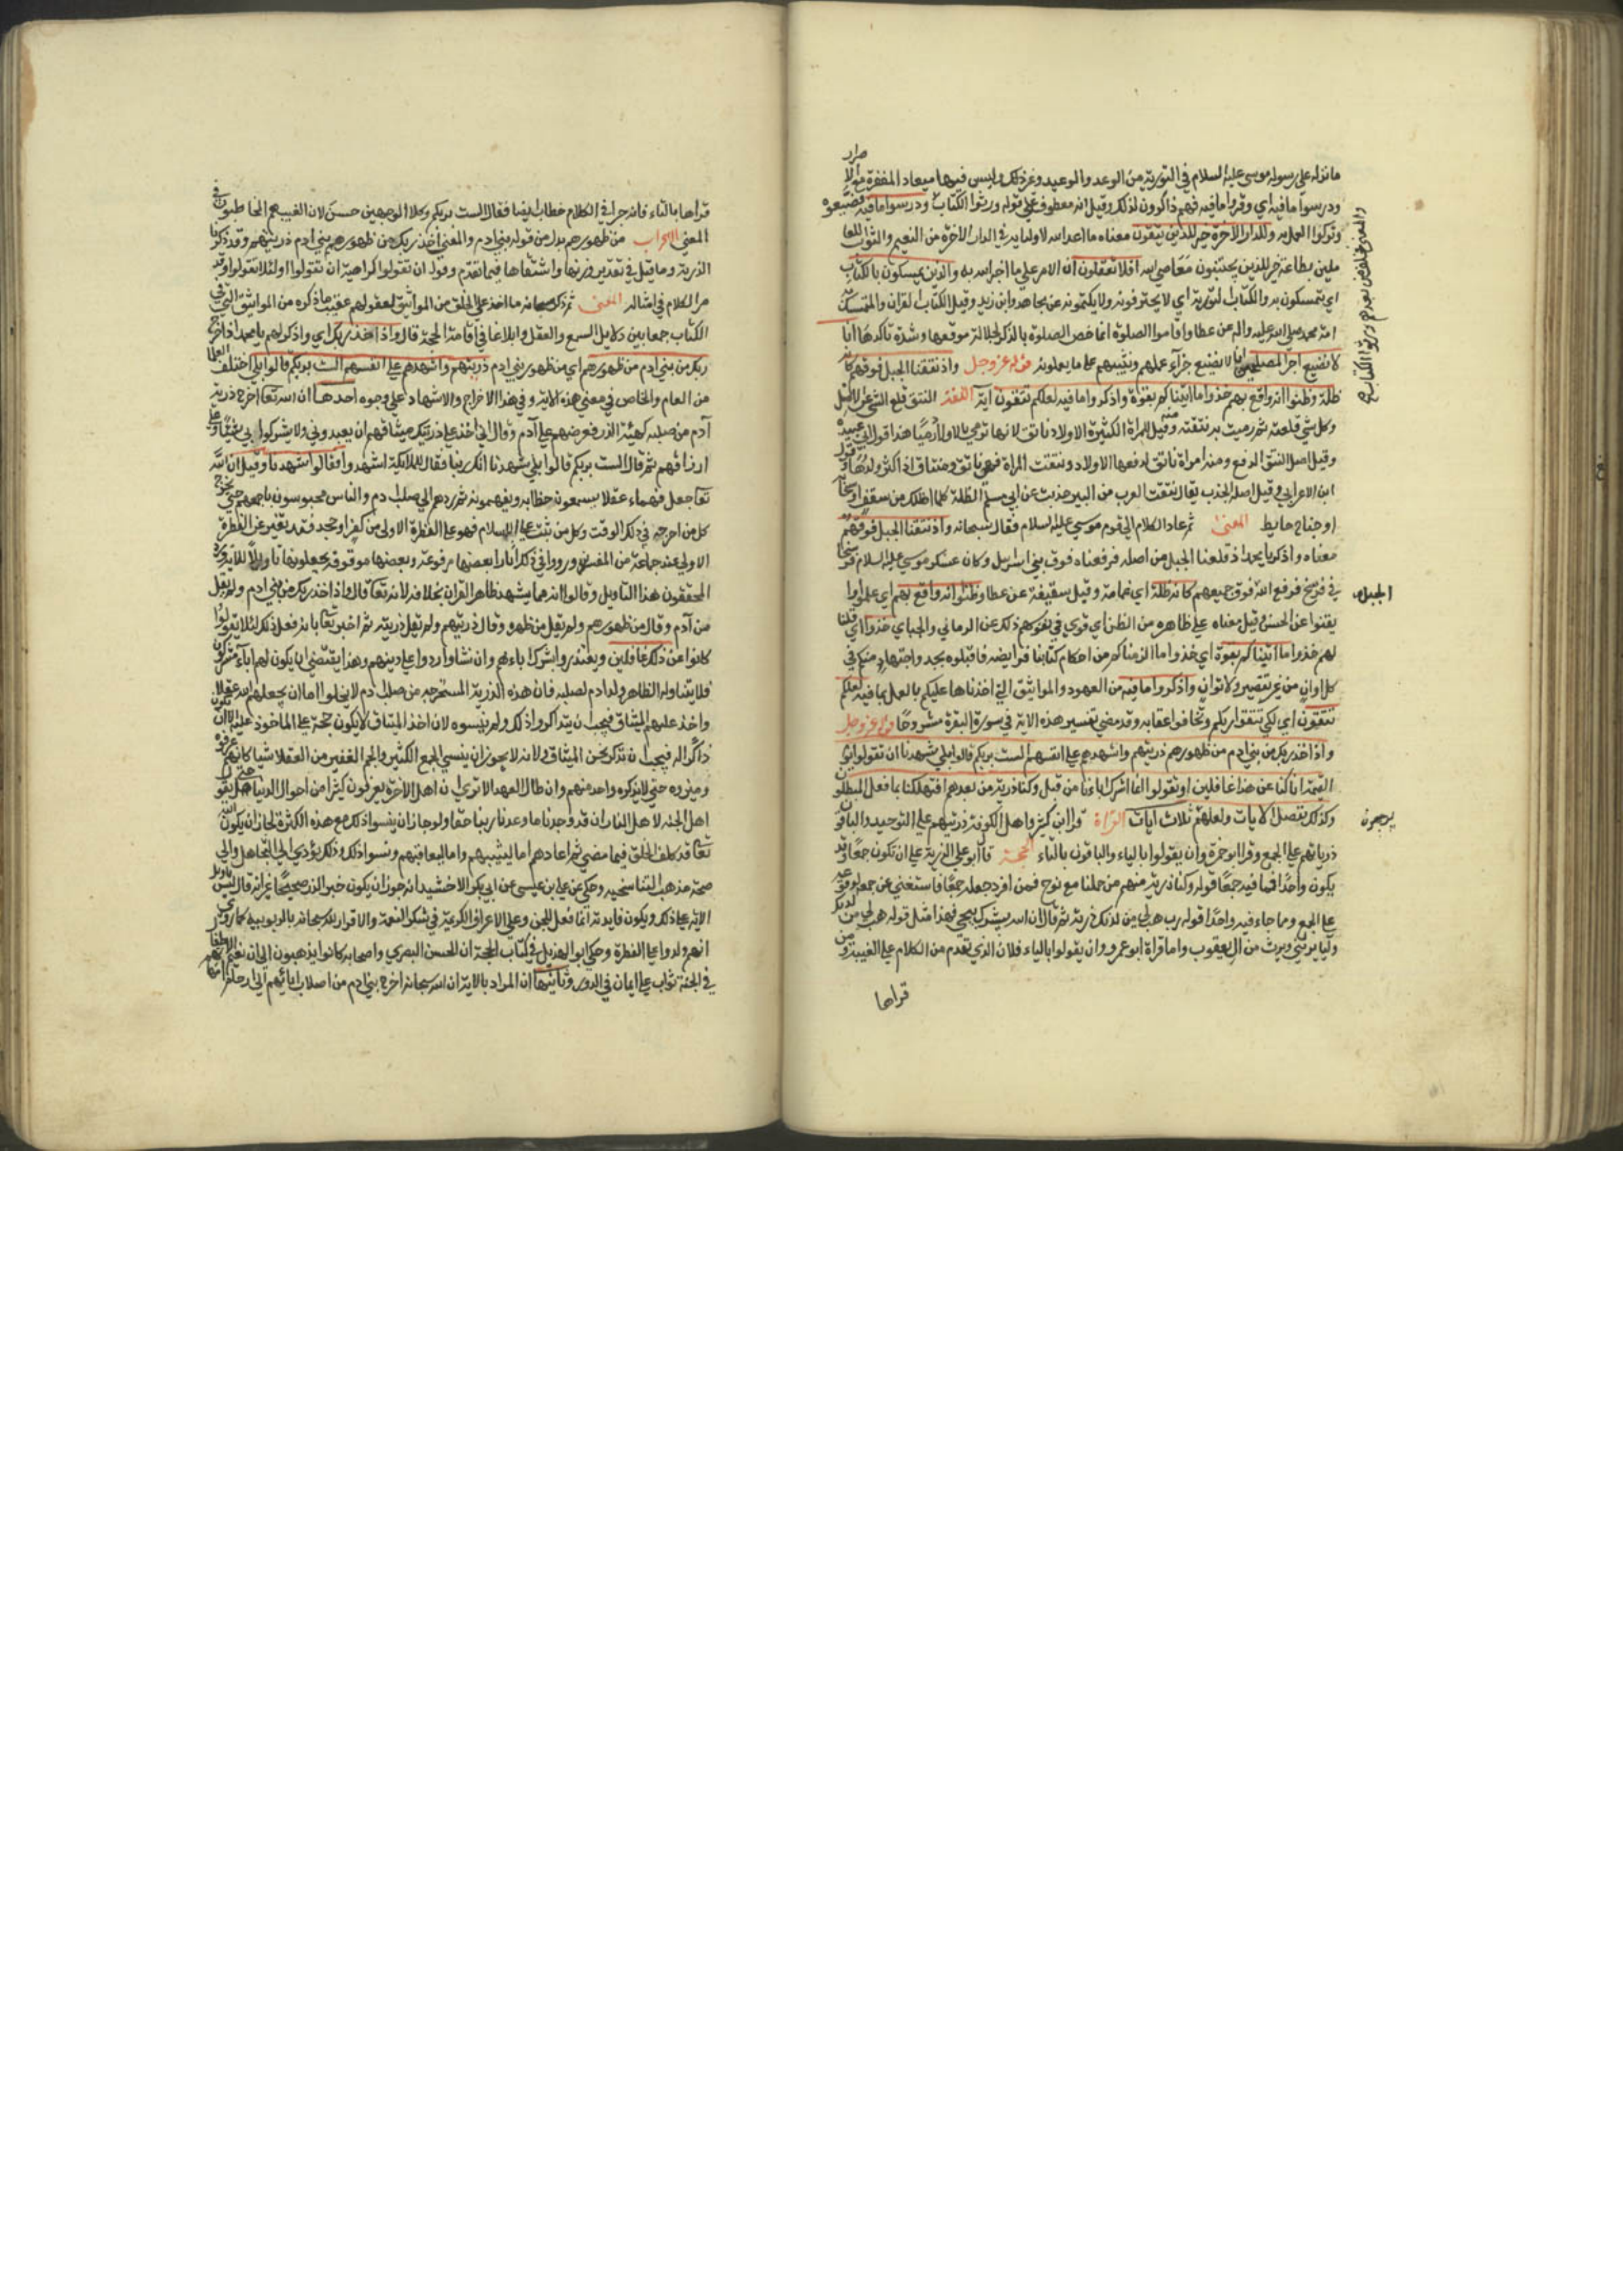 ما انزله على رسوله موسى عليه السلام في التورية من الوعد والوعيد وغير ذلك وليس فيها ميعاد المغفرة مع الا
صرار
ودرسوا ما فيه اي وقروا ما فيه فهم ذاكرون لذلك وقيل انه معطوف على قوله ورثوا الكتاب ودرسوا ما فيه فضيعوه
وتركوا العمل به وللدار الاخرة خير للذين يتقون معناه ما اعد الله لاوليايه في الدار الاخرة من النعيم والثواب للعا
ملين بطاعته خير للذين يجتنبون معاصي الله افلا تعقلون ان الامر على ما اخبر الله به والذين يمسكون بالكتاب
اي يتمسكون به والكتاب التورية اي لا يحرفونه ولا يكتمونه عن مجاهد وابن زيد وقيل الكتاب القران والمتمسك به
امة محمد صلى الله عليه واله عن عطا واقاموا الصلوة انما خص الصلوة بالذكر لجلالة موقعها وشدة تاكدها انا
لا نضيع اجر المصلحين اي انا لا نضيع جزآء عملهم ونثيبهم على ما يعملونه قوله عز وجل واذ نتقنا الجبل فوقهم كانه
ظلة وظنوا انه واقع بهم خذوا ما اتيناكم بقوة واذكروا ما فيه لعلكم تتقون آية اللغة النتق قلع الشي من الاصل
وكل شي قلعته ثم رميت به نتقته ومنه قيل للمراة الكثيرة الاولاد ناتق لانها ترمي بالاولاد رميا هذا قول ابي عبيدة
وقيل اصل النتق الرفع ومنه امراة ناتق لرفعها الاولاد ونتقت المراة فهي ناتق ومنتاق اذا كثر ولدها وقول
ابن الاعرابي وقيل اصله الجذب يقال نتقت الغرب من البير جذبت عن ابي مسلم الظلة كلما اظلك من سقف او سحاب
او جناح حايط المعنى ثم عاد الكلام الى قوم موسى عليه السلام فقال سبحانه واذ نتقنا الجبل فوقهم
معناه واذكر يا محمد اذ قلعنا الجبل من اصله فرفعناه فوق بني اسرايل وكان عسكر موسى عليه السلام فرسخا
في فرسخ فرفع الله فوق جميعهم كانه ظلة اي غمامة وقيل سقيفة عن عطا وظنوا انه واقع بهم اي علموا وا
يقنوا عن الحسن وقيل معناه على ظاهره من الظن اي قوي في نفوسهم ذلك عن الرماني والجباي خذوا اي قلنا
لهم خذوا ما اتيناكم بقوة اي خذوا ما الزمناكم من احكام كتابنا فرايضه فاقبلوه بجد واجتهاد منكم في
كل اوان من غير تقصير ولا توان واذكروا ما فيه من العهود والمواثيق التي اخذناها عليكم بالعمل بما فيه لعلكم
تتقون اي لكي تتقوا ربكم وتخافوا عقابه وقد مضى تفسير هذه الاية في سورة البقرة مشروحا قوله عز وجل
واذ اخذ ربك من بني ادم من ظهورهم ذريتهم واشهدهم على انفسهم الست بربكم قالوا بلى شهدنا ان تقولوا يوم
القيمة انا كنا عن هذا غافلين او تقولوا انما اشرك اباءنا من قبل وكنا ذرية من بعدهم افتهلكنا بما فعل المبطلون
وكذلك نفصل الايات ولعلهم ثلاث آيات القراة قرا ابن كثير واهل الكوفة ذريتهم على التوحيد والباقون
ذرياتهم على الجمع وقرا ابو عمرو ان يقولوا بالياء والباقون بالتاء الحجة قال ابو علي الذرية على ان تكون جمعا وقد
يكون واحدا فما فيه جمعا قوله وكنا ذرية منهم من حملنا مع نوح فمن افرد جعله جمعا فاستغنى عن جمعه لوقوعه
على الجمع ومما جاء فيه واحدا قوله رب هب لي من لدنك ذرية ثم قال ان الله يبشرك بيحيى فهذا مثل قوله هب لي من لدنك
وليا يرثني ويرث من آل يعقوب واما قراة ابو عمرو ان يقولوا بالياء فلان الذي تقدم من الكلام على الغيبة ومن
قراها
والمعنى فخلف من بعدهم ورثوا الكتاب
الجبل
يرجعون
قراها بالتاء فانه جرا في الكلام خطاب ايضا فقال الست بربكم وكلا الوجهين حسن لان الغيب هم المخاطبون في
المعنى الاعراب من ظهورهم بدل من قوله بني ادم والمعنى اخذ ربك من ظهورهم بني ادم ذريتهم وقد ذكرنا
الذرية وما قيل في تقدير وزنها واشتقاقها فيما تقدم وقوله ان تقولوا كراهية ان تقولوا او لئلا تقولوا وقد
مر الكلام في امثاله المعنى ثم ذكر سبحانه ما اخذ على الخلق من المواثيق لعقولهم عقيب ما ذكره من المواثيق التي في
الكتاب جمعا بين دلايل السمع والعقل وابلاغا في اقامة الحجة قال واذ اخذ ربك اي واذكر لهم يا محمد اذ اخرج
ربك من بني ادم من ظهورهم اي من ظهور بني ادم ذريتهم واشهدهم على انفسهم الست بربكم قالوا بلى اختلف العلما
من العام والخاص في معنى هذه الاية وفي هذا الاخراج والاشهاد على وجوه احدها ان الله تعا اخرج ذرية
آدم من صلبه كهيئة الذر فعرضهم على آدم وقال اني اخذ على ذريتك ميثاقهم ان يعبدوني ولا يشركوا بي شيئا وعلى
ارزاقهم ثم قال الست بربكم قالوا بلى شهدنا انك ربنا فقال للملايكة اشهدوا فقالوا شهدنا وقيل ان الله
تعا جعل فهماء عقلا يسمعون خطابه ويفهمونه ثم ردهم الى صلب ادم والناس محبوسون باجمعهم حتى يخرج
كل من اخرجه في ذلك الوقت وكل من ثبت على الاسلام فهو على الفطرة الاولى ومن كفر وجحد فقد تغير عن الفطرة
الاولى عند جماعة من المفسرين ورووا في ذلك اثارا بعضها مرفوعة وبعضها موقوفة يجعلونها تاويلا للاية ورد
المحققون هذا التاويل وقالوا انه مما يشهد ظاهر القران بخلافه لانه تعا قال واذ اخذ ربك من بني ادم ولم يقل
من آدم وقال من ظهورهم ولم يقل من ظهره وقال ذريتهم ولم يقل ذريته ثم اخبر تعا بانه فعل ذلك لئلا يقولوا
كانوا عن ذلك غافلين ويعتذروا بشرك اباءهم وان نشاوا ردوا على دينهم وهذا يقتضي ان يكون لهم اباء مشركون
فلا يتناوله الظاهر ولد ادم لصلبه فان هذه الذرية المستخرجه من صلب ادم لا يخلوا اما ان يجعلهم الله عقلا
واخذ عليهم الميثاق فيجب ان يتذكروا ذلك ولم ينسوه لان اخذ الميثاق لا يكون حجة على الماخوذ عليه الا ان يكون
ذاكرا له فيجب ان نذكر نحن الميثاق ولانه لا يجوز ان ينسى الجمع الكثير والجم الغفير من العقلا شيا كانوا عرفوه
وميزوه حتى لا يذكره واحد منهم وان طال العهد الا ترى ان اهل الاخرة يعرفون كثيرا من احوال الدنيا حتى يقول
اهل الجنة لاهل النار ان قد وجدنا ما وعدنا ربنا حقا ولو جاز ان ينسوا ذلك مع هذه الكثرة لجاز ان يكون الله
تعا قد كلف الخلق فيما مضى ثم اعادهم اما ليثيبهم واما ليعاقبهم ونسوا ذلك وذلك يؤدي الى التجاهل والى
صحة مذهب التناسخيه وحكى عن علي بن عيسى عن ابي بكر الاخشيد انه جوز ان يكون خبر الذر صحيحا غير انه قال ليس تاويل
الاية على ذلك ويكون فايدته انما فعل ليجروا على الاعراق الكريمة في شكر النعمة والاقرار لله سبحانه بالربوبية كما روي
انهم ولدوا على الفطرة وحكى ابو الهذيل في كتاب الحجة ان الحسن البصري واصحابه كانوا يذهبون الى ان نعيم الاطفال
في الجنة ثواب على ايمان في الذر وثانيها ان المراد بالاية ان الله سبحانه اخرج بني ادم من اصلاب ابائهم الى ارحام امهاتهم